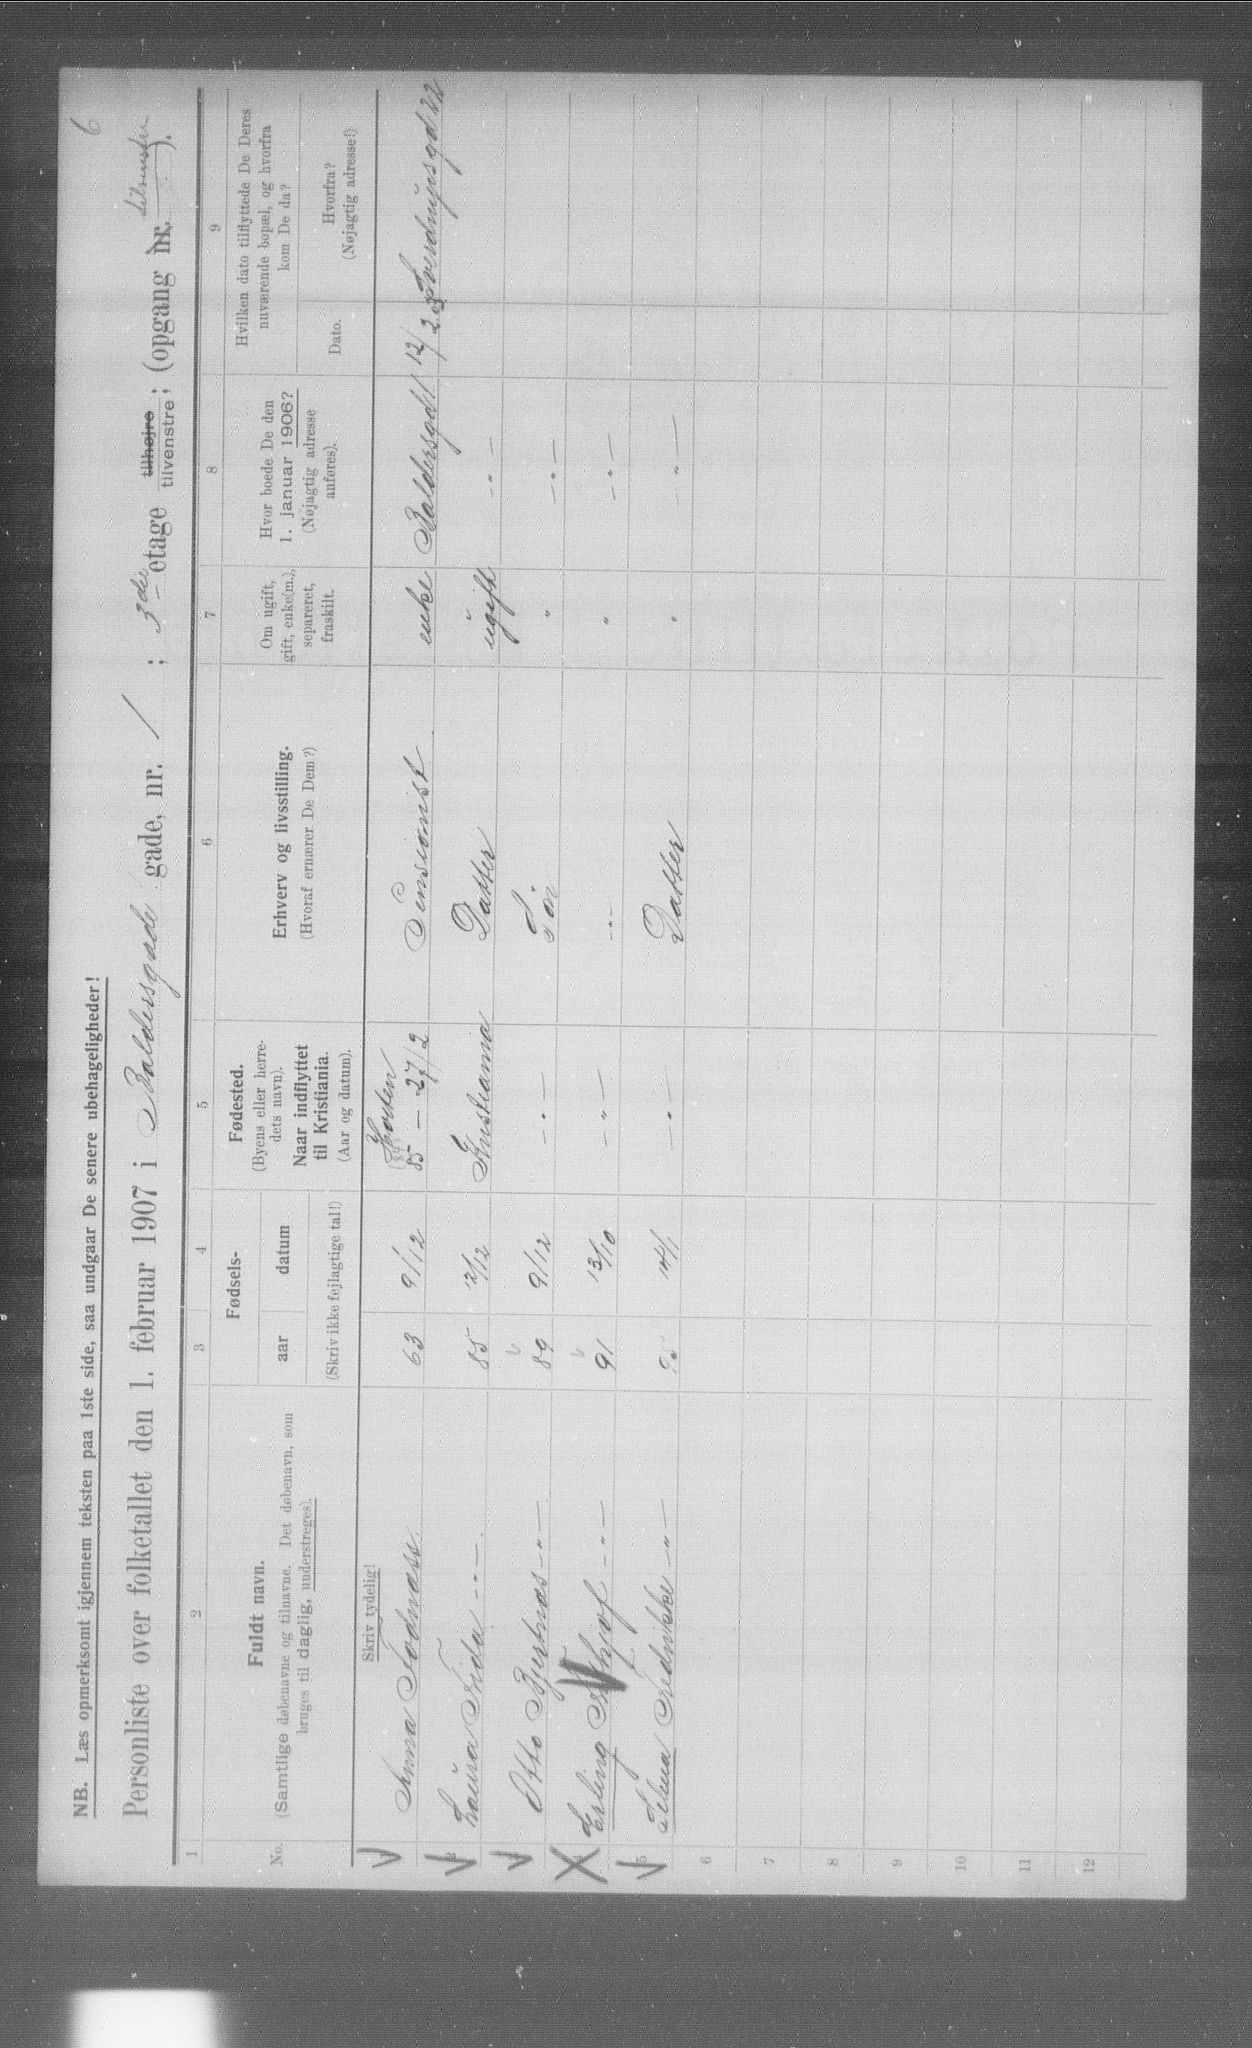 6
NB. Læs opmerksomt igjennem teksten paa 1ste side, saa undgaar De senere ubehageligheder!
Personliste over folketallet den 1. februar 1907 i Baldersgade gade, nr. 1 ; 3die etage tilhøjre tilvenstre; (opgang nr. tilvenstre).
1 2 3 4 5 6 7 8 9
No.
Fuldt navn.
(Samtlige døbenavne og tilnavne. Det døbenavn, som
bruges til daglig, understreges).
Fødsels-
aar datum
(Skriv ikke fejlagtige tal!)
Fødested.
(Byens eller herre-
dets navn).
Naar indflyttet
til Kristiania.
(Aar og datum).
Erhverv og livsstilling.
(Hvoraf ernærer De Dem?)
Om ugift,
gift, enke(m.),
separeret,
fraskilt.
Hvor boede De den
1. januar 1906?
(Nøjagtig adresse
anføres).
Hvilken dato tilflyttede De Deres
nuværende bopæl, og hvorfra
kom De da?
Dato.
Hvorfra?
(Nøjagtig adresse!)
Skriv tydelig!
1 Anna Fodnæss 63 9/12 Horten 85 - 27/2 Pensionist enke Baldersgd 1 12/2 03
2 Laura Frida -"- 85 12/12 Kristiania Datter ugift -"-
3 Otto Bjertnæs -"- 89 9/12 -"- Søn " -"-
4 Erling Fridthjof -"- 91 13/10 -"- -"- " -"-
5 Fredrikke -"- 14/1 -"- Datter " -"-
6
7
8
9
10
11
12